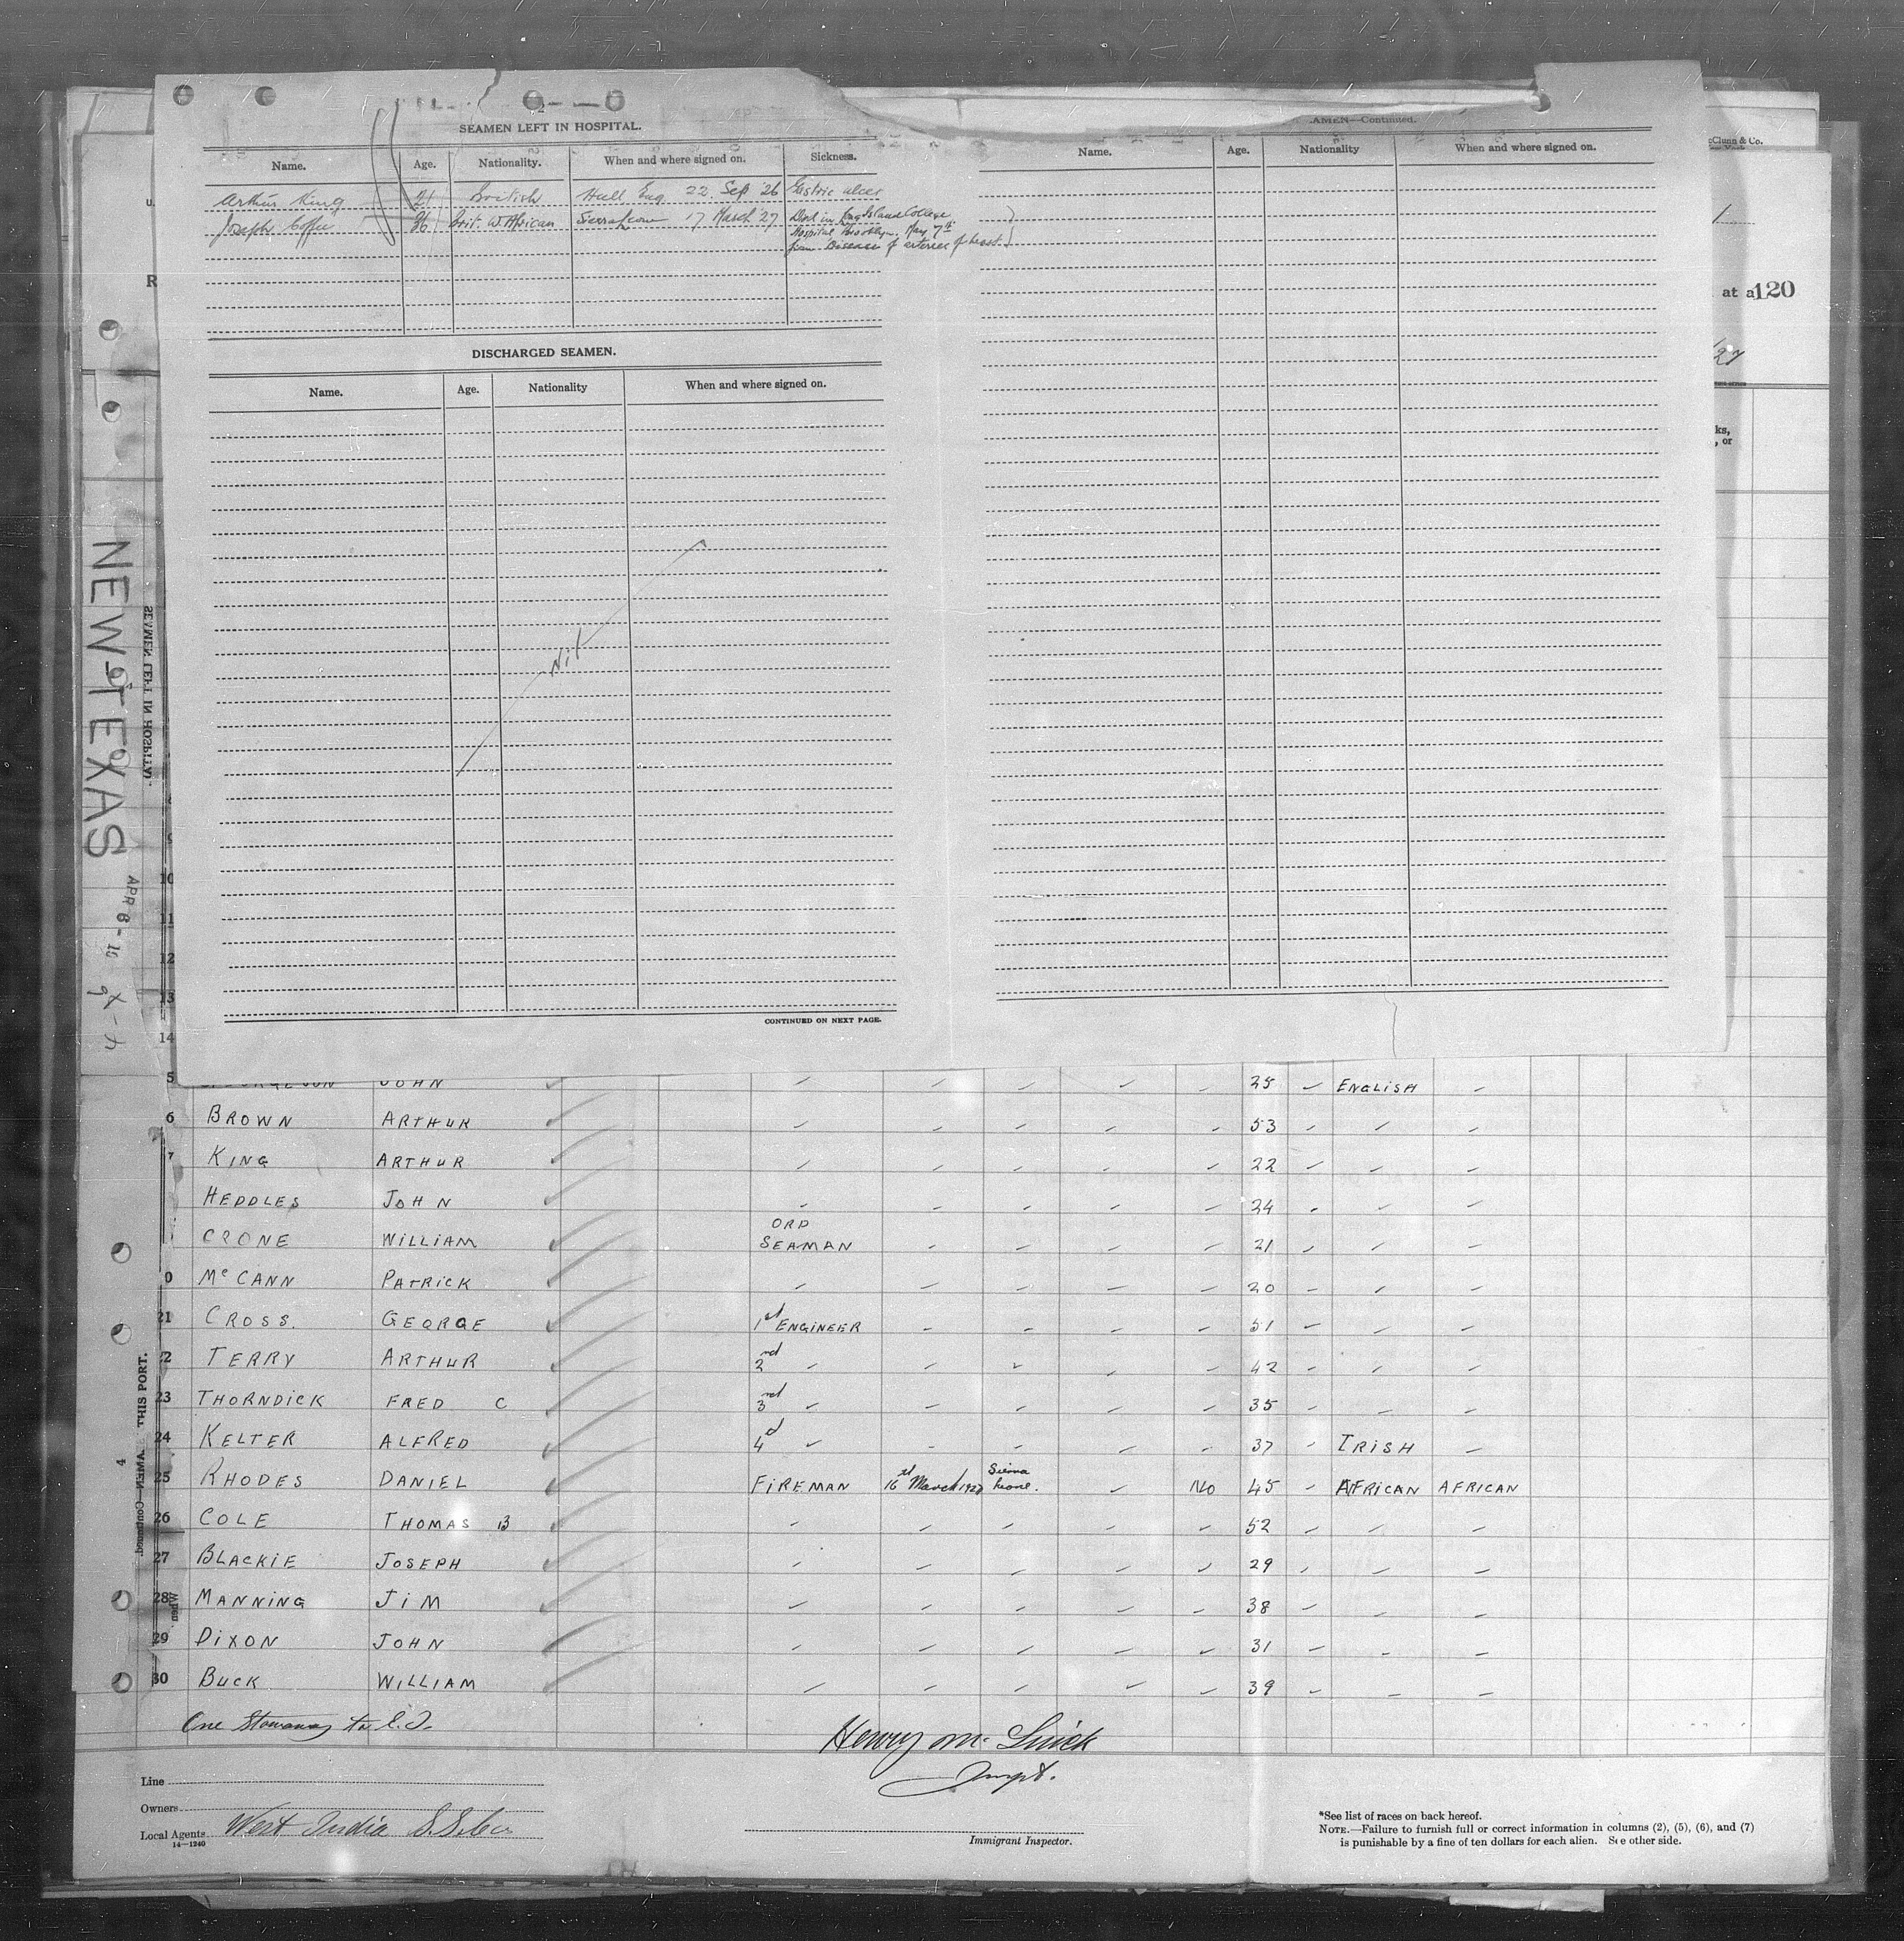 SEAMEN LEFT IN HOSPITAL.
Name. Age. Nationality. When and where signed on. Sickness.
Arthur King 21 British Hull Eng. 22 Sep '26 Gastric ulcer
Joseph Coffie 36 Brit. W. African Sierra Leone 17 March '27 Died in Long Island College
Hospital Brooklyn. May 7th
from Disease of arteries of heart.
DISCHARGED SEAMEN.
Name. Age. Nationality When and where signed on.
Nil
CONTINUED ON NEXT PAGE.
AMEN—Continued.
Name. Age. Nationality When and where signed on.
McClunn & Co.
1
at a 120
/27
ks,
, or
NEW TEXAS
SEAMEN LEFT IN HOSPITAL.
APR 6 -
R
9
10
11
12
13
14
5 JOHN 25 ENGLISH
6 BROWN ARTHUR 53
7 KING ARTHUR 22
HEDDLES JOHN 24
CRONE WILLIAM ORD SEAMAN 21
0 McCANN PATRICK 20
21 CROSS. GEORGE 1st ENGINEER 51
2 TERRY ARTHUR 2nd 42
23 THORNDICK FRED C 3rd 35
24 KELTER ALFRED 4d 37 IRISH
25 RHODES DANIEL FIREMAN 16th March 1927 Sierra Leone. No 45 AFRICAN AFRICAN
26 COLE THOMAS B 52
27 BLACKIE JOSEPH 29
28 MANNING JIM 38
29 DIXON JOHN 31
30 BUCK WILLIAM 39
One Stowaway to E.I.
THIS PORT.
AMEN—Continued.
4
When
Line
Owners
Local Agents West India S.S. Co
14—1240
Immigrant Inspector.
*See list of races on back hereof.
NOTE.—Failure to furnish full or correct information in columns (2), (5), (6), and (7)
is punishable by a fine of ten dollars for each alien. See other side.